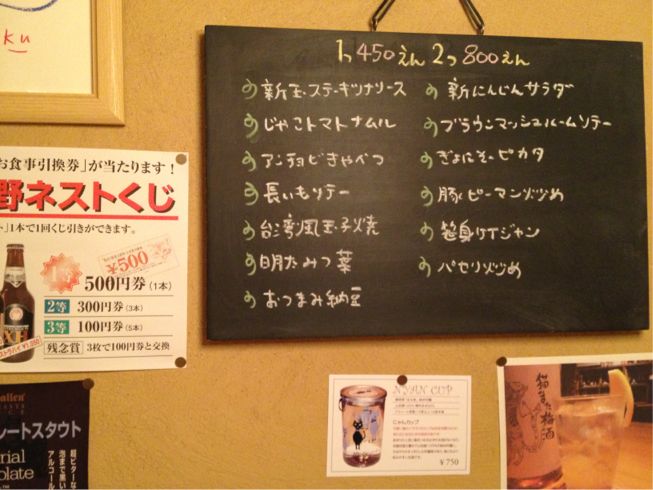 ku
1つ450えん 2つ800えん
新玉ステーキツナソース
じゃこトマトナムル
アンチョビきゃべつ
長いもソテー
台湾風玉子焼
明太みつ葉
おつまみ納豆
新にんじんサラダ
ブラウンマッシュルームソテー
ぎょにそーピカタ
豚ピーマン炒め
笹身ケイジャン
パセリ炒め
お食事引換券」が当たります！
野ネストくじ
1本で1回くじ引きができます。
¥500
1等 500円券(1本)
2等 300円券(3本)
3等 100円券(5本)
残念賞 3枚で100円券と交換
レートスタウト
NYAN CUP
にゃんカップ
¥750
猫また梅酒